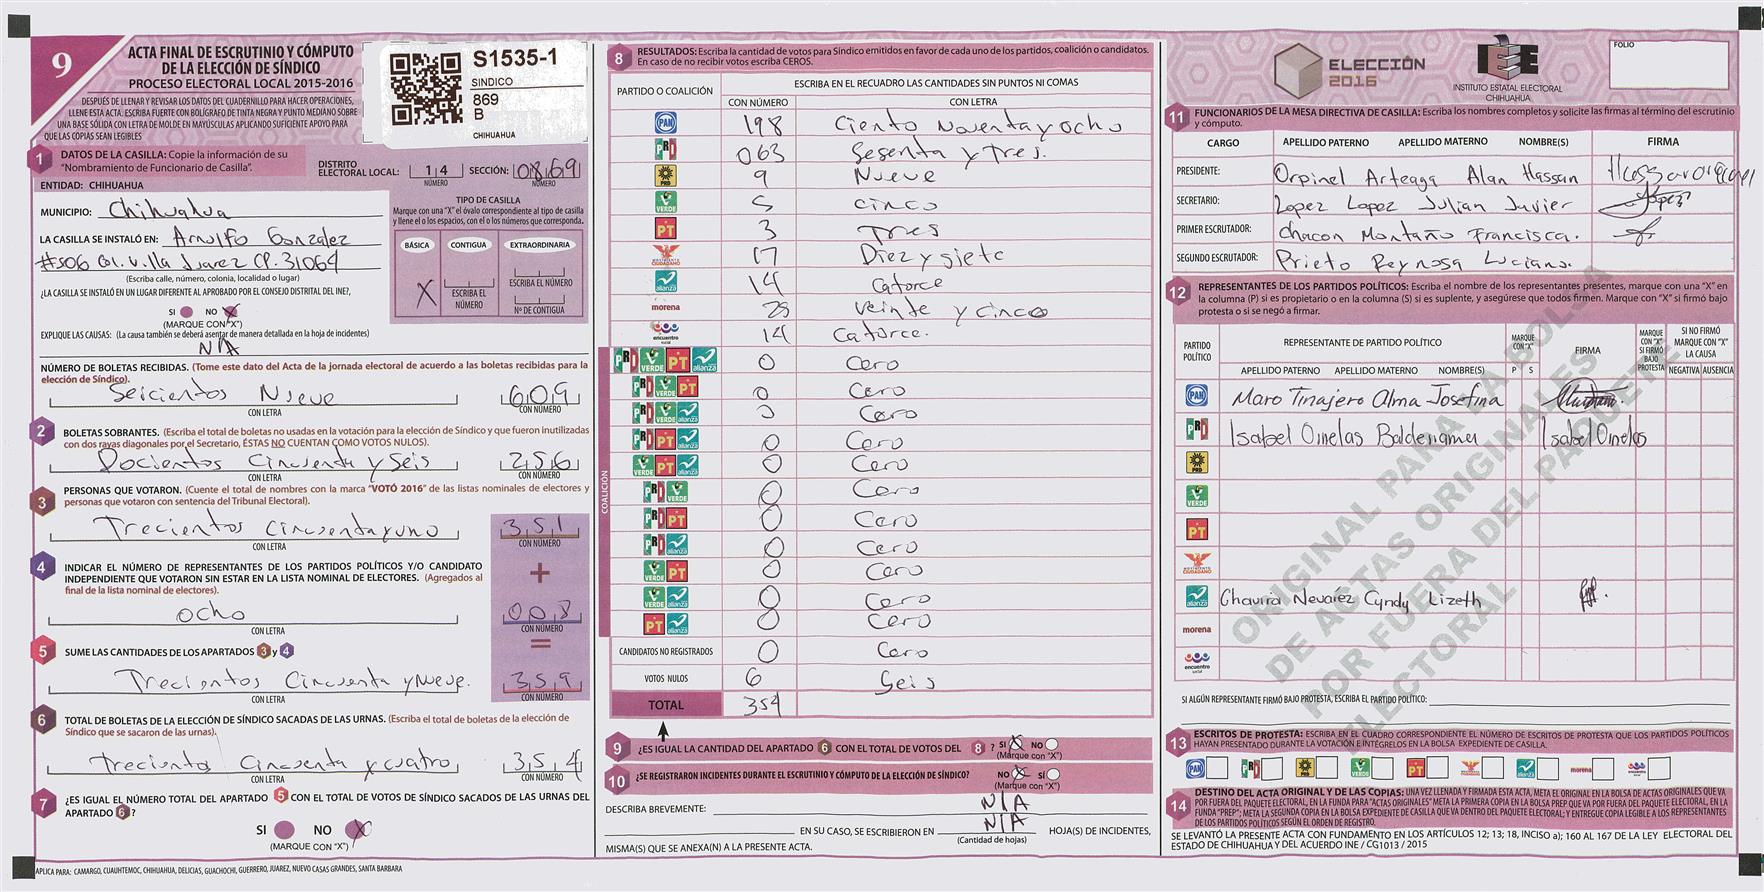 9
ACTA FINAL DE ESCRUTINIO Y CÓMPUTO
DE LA ELECCIÓN DE SÍNDICO
PROCESO ELECTORAL LOCAL 2015-2016
DESPUÉS DE LLENAR Y REVISAR LOS DATOS DEL CUADERNILLO PARA HACER OPERACIONES,
LLENE ESTA ACTA. ESCRIBA FUERTE CON BOLÍGRAFO DE TINTA NEGRA Y PUNTO MEDIANO SOBRE
UNA BASE SÓLIDA CON LETRA DE MOLDE EN MAYÚSCULAS APLICANDO SUFICIENTE APOYO PARA
QUE LAS COPIAS SEAN LEGIBLES
S1535-1
SINDICO
869
B
CHIHUAHUA
1 DATOS DE LA CASILLA: Copie la información de su
"Nombramiento de Funcionario de Casilla".
DISTRITO ELECTORAL LOCAL: 14 NÚMERO SECCIÓN: 0869 NÚMERO
ENTIDAD: CHIHUAHUA
MUNICIPIO: Chihuahua
LA CASILLA SE INSTALÓ EN: Arnulfo Gonzalez
#506 Col. Villa Juarez CP. 31064
(Escriba calle, número, colonia, localidad o lugar)
¿LA CASILLA SE INSTALÓ EN UN LUGAR DIFERENTE AL APROBADO POR EL CONSEJO DISTRITAL DEL INE?,
SI NO X
(MARQUE CON "X")
EXPLIQUE LAS CAUSAS: (La causa también se deberá asentar de manera detallada en la hoja de incidentes)
N/A
TIPO DE CASILLA
Marque con una "X" el óvalo correspondiente al tipo de casilla
y llene el o los espacios, con el o los números que corresponda.
BÁSICA CONTIGUA EXTRAORDINARIA
X ESCRIBA EL NÚMERO ESCRIBA EL NÚMERO
Nº DE CONTIGUA
NÚMERO DE BOLETAS RECIBIDAS. (Tome este dato del Acta de la jornada electoral de acuerdo a las boletas recibidas para la
elección de Síndico).
Seicientos Nueve 609
CON LETRA CON NÚMERO
2 BOLETAS SOBRANTES. (Escriba el total de boletas no usadas en la votación para la elección de Síndico y que fueron inutilizadas
con dos rayas diagonales por el Secretario, ÉSTAS NO CUENTAN COMO VOTOS NULOS).
Docientos Cincuenta y Seis 256
CON LETRA CON NÚMERO
3 PERSONAS QUE VOTARON. (Cuente el total de nombres con la marca "VOTÓ 2016" de las listas nominales de electores y
personas que votaron con sentencia del Tribunal Electoral).
Trecientos Cincuenta y uno 351
CON LETRA CON NÚMERO
4 INDICAR EL NÚMERO DE REPRESENTANTES DE LOS PARTIDOS POLÍTICOS Y/O CANDIDATO
INDEPENDIENTE QUE VOTARON SIN ESTAR EN LA LISTA NOMINAL DE ELECTORES. (Agregados al
final de la lista nominal de electores).
+
ocho 008
CON LETRA CON NÚMERO
5 SUME LAS CANTIDADES DE LOS APARTADOS 3 y 4
=
Trecientos Cincuenta y Nueve. 359
CON LETRA CON NÚMERO
6 TOTAL DE BOLETAS DE LA ELECCIÓN DE SÍNDICO SACADAS DE LAS URNAS. (Escriba el total de boletas de la elección de
Síndico que se sacaron de las urnas).
Trecientos Cincuenta y cuatro 354
CON LETRA CON NÚMERO
7 ¿ES IGUAL EL NÚMERO TOTAL DEL APARTADO 5 CON EL TOTAL DE VOTOS DE SÍNDICO SACADOS DE LAS URNAS DEL
APARTADO 6?
SI NO X
(MARQUE CON "X")
APLICA PARA: CAMARGO, CUAUHTEMOC, CHIHUAHUA, DELICIAS, GUACHOCHI, GUERRERO, JUAREZ, NUEVO CASAS GRANDES, SANTA BARBARA
8 RESULTADOS: Escriba la cantidad de votos para Síndico emitidos en favor de cada uno de los partidos, coalición o candidatos.
En caso de no recibir votos escriba CEROS.
PARTIDO O COALICIÓN ESCRIBA EN EL RECUADRO LAS CANTIDADES SIN PUNTOS NI COMAS
CON NÚMERO CON LETRA
PAN 198 Ciento Noventa y ocho
PRI 063 Sesenta y Tres.
PRD 9 Nueve
VERDE 5 Cinco
PT 3 Tres
MOVIMIENTO CIUDADANO 17 Diez y siete
alianza 14 Catorce
morena 25 Veinte y cinco
encuentro social 14 Catorce.
COALICIÓN
PRI VERDE PT alianza 0 Cero
PRI VERDE PT 0 Cero
PRI VERDE alianza 0 Cero
PRI PT alianza 0 Cero
VERDE PT alianza 0 Cero
PRI VERDE 0 Cero
PRI PT 0 Cero
PRI alianza 0 Cero
VERDE PT 0 Cero
VERDE alianza 0 Cero
PT alianza 0 Cero
CANDIDATOS NO REGISTRADOS 0 Cero
VOTOS NULOS 6 Seis
TOTAL 354
9 ¿ES IGUAL LA CANTIDAD DEL APARTADO 6 CON EL TOTAL DE VOTOS DEL 8 ? SI X NO
(Marque con "X")
10 ¿SE REGISTRARON INCIDENTES DURANTE EL ESCRUTINIO Y CÓMPUTO DE LA ELECCIÓN DE SÍNDICO? NO X SI
(Marque con "X")
DESCRIBA BREVEMENTE: N/A
EN SU CASO, SE ESCRIBIERON EN N/A HOJA(S) DE INCIDENTES,
(Cantidad de hojas)
MISMA(S) QUE SE ANEXA(N) A LA PRESENTE ACTA.
ELECCIÓN
2016
IEE
INSTITUTO ESTATAL ELECTORAL
CHIHUAHUA
FOLIO
11 FUNCIONARIOS DE LA MESA DIRECTIVA DE CASILLA: Escriba los nombres completos y solicite las firmas al término del escrutinio
y cómputo.
CARGO APELLIDO PATERNO APELLIDO MATERNO NOMBRE(S) FIRMA
PRESIDENTE: Orpinel Arteaga Alan Hassan
SECRETARIO: Lopez Lopez Julian Javier
PRIMER ESCRUTADOR: Chacon Montaño Francisca.
SEGUNDO ESCRUTADOR: Prieto Reynosa Luciano.
12 REPRESENTANTES DE LOS PARTIDOS POLÍTICOS: Escriba el nombre de los representantes presentes, marque con una "X" en
la columna (P) si es propietario o en la columna (S) si es suplente, y asegúrese que todos firmen. Marque con "X" si firmó bajo
protesta o si se negó a firmar.
PARTIDO POLÍTICO REPRESENTANTE DE PARTIDO POLÍTICO MARQUE CON "X" FIRMA MARQUE CON "X" SI FIRMÓ BAJO PROTESTA SI NO FIRMÓ MARQUE CON "X" LA CAUSA
APELLIDO PATERNO APELLIDO MATERNO NOMBRE(S) P S NEGATIVA AUSENCIA
PAN Maro Tinajero Alma Josefina
PRI Isabel Ornelas Balderrama Isabel Ornelas
PRD
VERDE
PT
MOVIMIENTO CIUDADANO
alianza Chavira Nevarez Cyndy Lizeth
morena
encuentro social
ORIGINAL PARA LA BOLSA
DE ACTAS ORIGINALES
POR FUERA DEL PAQUETE
ELECTORAL
SI ALGÚN REPRESENTANTE FIRMÓ BAJO PROTESTA, ESCRIBA EL PARTIDO POLÍTICO:
13 ESCRITOS DE PROTESTA: ESCRIBA EN EL CUADRO CORRESPONDIENTE EL NÚMERO DE ESCRITOS DE PROTESTA QUE LOS PARTIDOS POLÍTICOS
HAYAN PRESENTADO DURANTE LA VOTACIÓN E INTÉGRELOS EN LA BOLSA EXPEDIENTE DE CASILLA.
PAN PRI PRD VERDE PT MOVIMIENTO CIUDADANO alianza morena encuentro social
14 DESTINO DEL ACTA ORIGINAL Y DE LAS COPIAS: UNA VEZ LLENADA Y FIRMADA ESTA ACTA, META EL ORIGINAL EN LA BOLSA DE ACTAS ORIGINALES QUE VA
POR FUERA DEL PAQUETE ELECTORAL, EN LA FUNDA PARA "ACTAS ORIGINALES" META LA PRIMERA COPIA EN LA BOLSA PREP QUE VA POR FUERA DEL PAQUETE ELECTORAL, EN LA
FUNDA "PREP"; META LA SEGUNDA COPIA EN LA BOLSA EXPEDIENTE DE CASILLA QUE VA DENTRO DEL PAQUETE ELECTORAL; Y ENTREGUE COPIA LEGIBLE A LOS REPRESENTANTES
DE LOS PARTIDOS POLÍTICOS SEGÚN EL ORDEN DE REGISTRO.
SE LEVANTÓ LA PRESENTE ACTA CON FUNDAMENTO EN LOS ARTÍCULOS 12; 13; 18, INCISO a); 160 AL 167 DE LA LEY ELECTORAL DEL
ESTADO DE CHIHUAHUA Y DEL ACUERDO INE / CG1013 / 2015